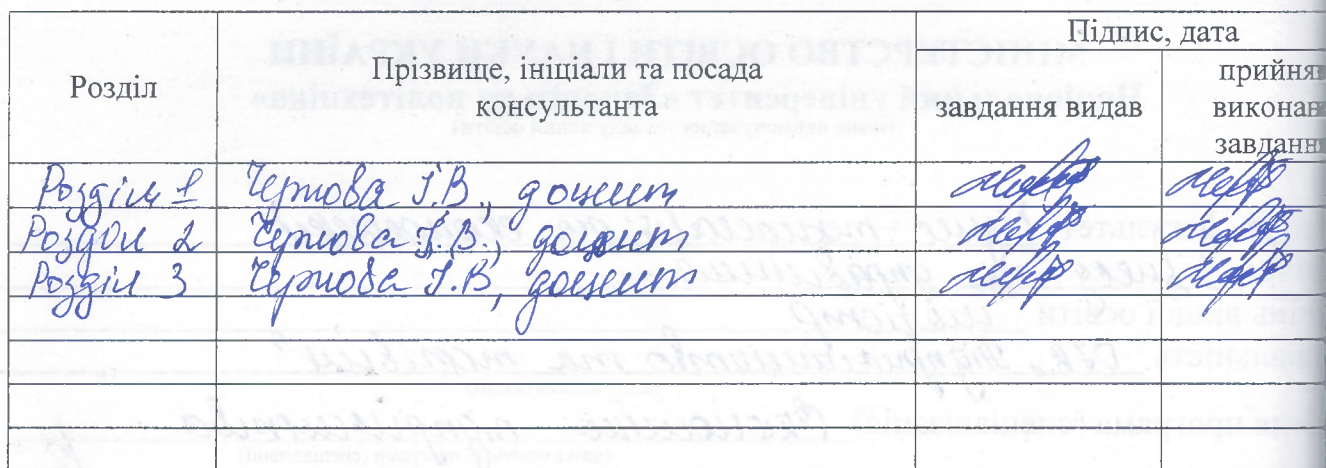 Розділ
Прізвище, ініціали та посада
консультанта
Підпис, дата
завдання видав
прийняв
виконане
завдання
Розділ 1 Чернова І.В., доцент
Розділ 2 Чернова І.В., доцент
Розділ 3 Чернова І.В., доцент